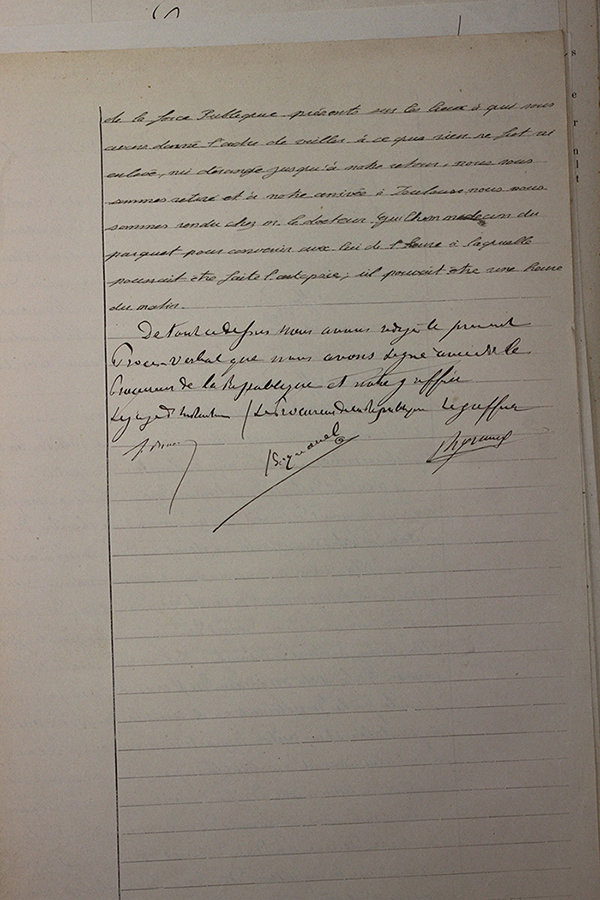 de la force Publique présents sur les lieux à qui nous
avons donné l'ordre de veiller à ce que rien ne fut ni
enlevé, ni dérangé jusqu'à notre retour, nous nous
sommes retiré et à notre arrivée à Toulouse nous nous
sommes rendu chez m. le docteur Guilhem médecin du
parquet pour convenir avec lui de l'heure à laquelle
pourrait être faite l'autopsie, il pouvait être une heure
du matin.
De tout ce dessus nous avons rédigé le présent
Procès-verbal que nous avons signé avec le
Procureur de la République et notre greffier
Le juge d'Instruction / Le Procureur de la République Le greffier
s
e
r
n
l t